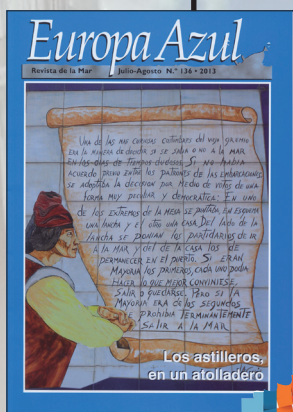 Europa Azul
Revista de la Mar Julio-Agosto N.º 136 • 2013
UNA DE LAS MÁS CURIOSAS COSTUMBRES DEL VIEJO GREMIO
ERA LA MANERA DE DECIDIR SI SE SALÍA O NO A LA MAR
EN LOS DÍAS DE TIEMPOS DUDOSOS. SI NO HABÍA
ACUERDO PREVIO ENTRE LOS PATRONES DE LAS EMBARCACIONES
SE ADOPTABA LA DECISIÓN POR MEDIO DE VOTOS DE UNA
FORMA MUY PECULIAR Y DEMOCRÁTICA: EN UNO
DE LOS EXTREMOS DE LA MESA SE PINTABA EN ESQUEMA
UNA LANCHA Y EL OTRO UNA CASA. DEL LADO DE LA
LANCHA SE PONÍAN LOS PARTIDARIOS DE IR
A LA MAR Y DEL DE LA CASA LOS DE
PERMANECER EN EL PUERTO. SI ERAN
MAYORÍA LOS PRIMEROS, CADA UNO PODÍA
HACER LO QUE MEJOR CONVINIESE,
SALIR O QUEDARSE. PERO SI LA
MAYORÍA ERA DE LOS SEGUNDOS
SE PROHIBÍA TERMINANTEMENTE
SALIR A LA MAR
Los astilleros,
en un atolladero